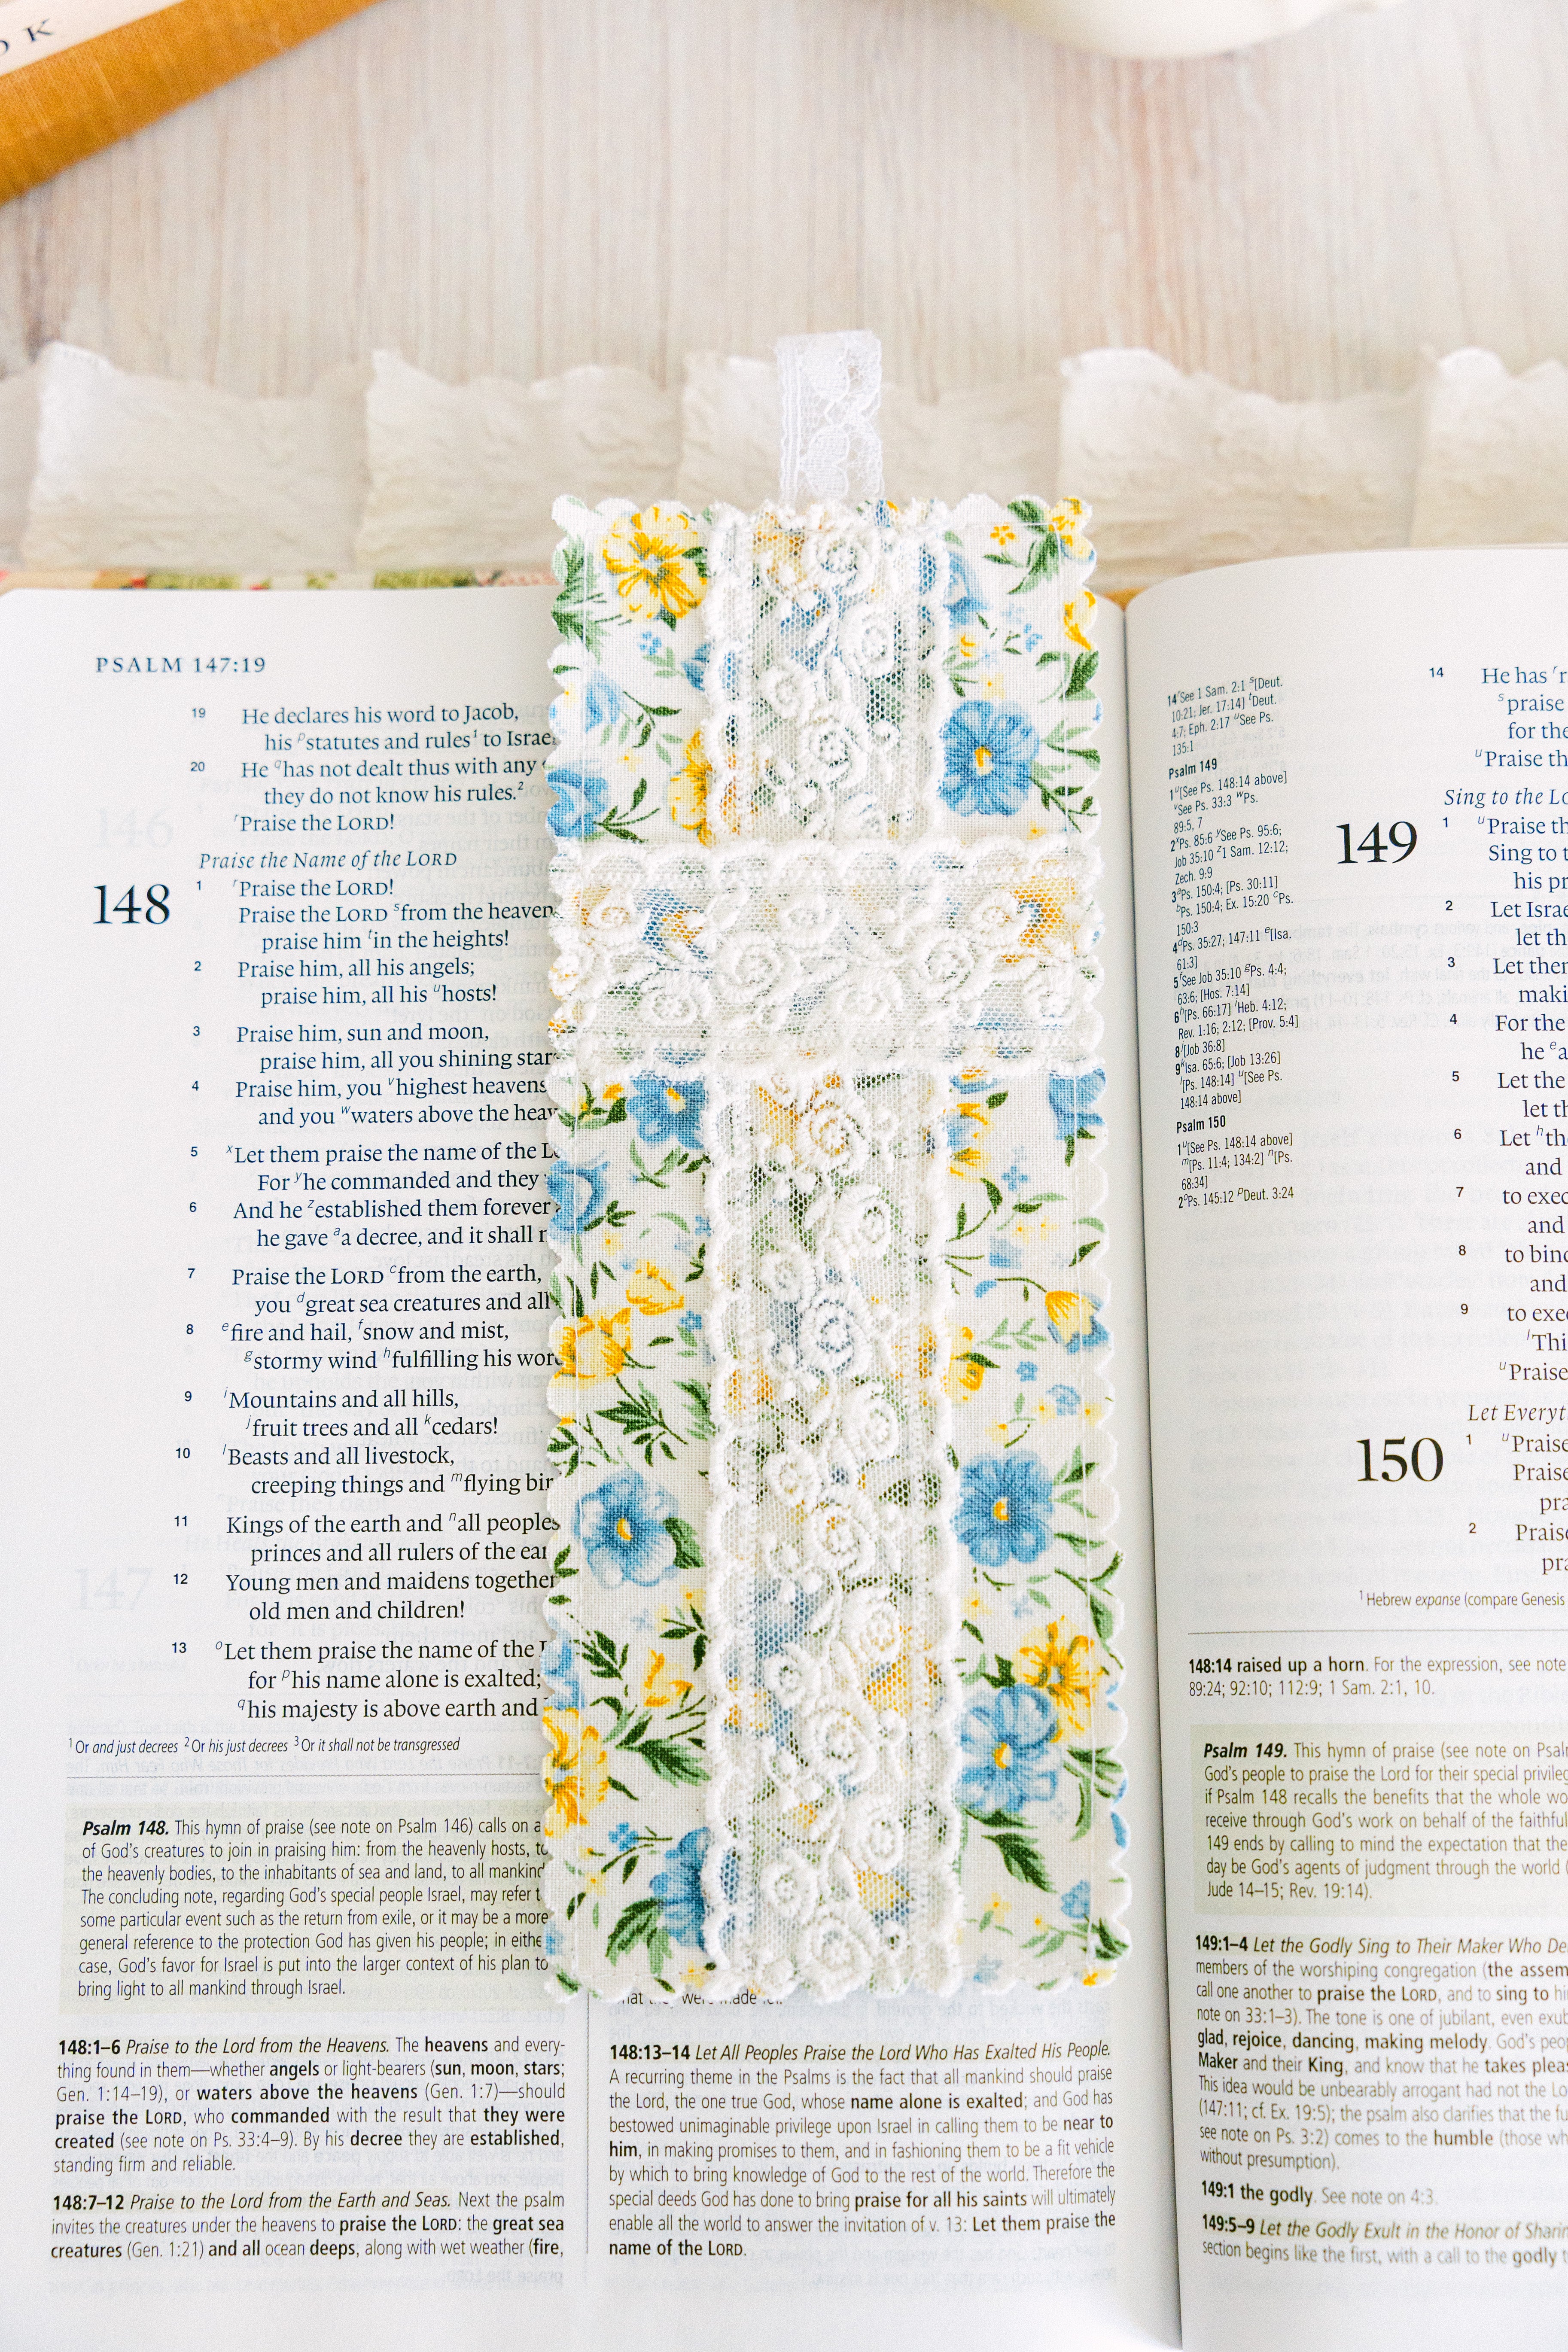 OK
PSALM 147:19
19 He declares his word to Jacob,
his pstatutes and rules1 to Israe
20 He qhas not dealt thus with any
they do not know his rules.2
rPraise the LORD!
Praise the Name of the LORD
148 1 rPraise the LORD!
Praise the LORD sfrom the heaven
praise him tin the heights!
2 Praise him, all his angels;
praise him, all his uhosts!
3 Praise him, sun and moon,
praise him, all you shining star
4 Praise him, you vhighest heavens
and you wwaters above the heav
5 xLet them praise the name of the L
For yhe commanded and they
6 And he zestablished them forever
he gave aa decree, and it shall
7 Praise the LORD cfrom the earth,
you dgreat sea creatures and all
8 efire and hail, fsnow and mist,
gstormy wind hfulfilling his wor
9 iMountains and all hills,
jfruit trees and all kcedars!
10 lBeasts and all livestock,
creeping things and mflying bir
11 Kings of the earth and nall peoples
princes and all rulers of the ear
12 Young men and maidens together
old men and children!
13 oLet them praise the name of the
for phis name alone is exalted;
qhis majesty is above earth and
1 Or and just decrees 2 Or his just decrees 3 Or it shall not be transgressed
Psalm 148. This hymn of praise (see note on Psalm 146) calls on a
of God's creatures to join in praising him: from the heavenly hosts, to
the heavenly bodies, to the inhabitants of sea and land, to all mankind
The concluding note, regarding God's special people Israel, may refer t
some particular event such as the return from exile, or it may be a more
general reference to the protection God has given his people; in eithe
case, God's favor for Israel is put into the larger context of his plan to
bring light to all mankind through Israel.
148:1–6 Praise to the Lord from the Heavens. The heavens and every-
thing found in them—whether angels or light-bearers (sun, moon, stars;
Gen. 1:14–19), or waters above the heavens (Gen. 1:7)—should
praise the LORD, who commanded with the result that they were
created (see note on Ps. 33:4–9). By his decree they are established,
standing firm and reliable.
148:7–12 Praise to the Lord from the Earth and Seas. Next the psalm
invites the creatures under the heavens to praise the LORD: the great sea
creatures (Gen. 1:21) and all ocean deeps, along with wet weather (fire,
were made
148:13–14 Let All Peoples Praise the Lord Who Has Exalted His People.
A recurring theme in the Psalms is the fact that all mankind should praise
the Lord, the one true God, whose name alone is exalted; and God has
bestowed unimaginable privilege upon Israel in calling them to be near to
him, in making promises to them, and in fashioning them to be a fit vehicle
by which to bring knowledge of God to the rest of the world. Therefore the
special deeds God has done to bring praise for all his saints will ultimately
enable all the world to answer the invitation of v. 13: Let them praise the
name of the LORD.
14 rSee 1 Sam. 2:1 s[Deut.
10:21; Jer. 17:14] tDeut.
4:7; Eph. 2:17 uSee Ps.
135:1
Psalm 149
1 u[See Ps. 148:14 above]
vSee Ps. 33:3 wPs.
89:5, 7
2 xPs. 85:6 ySee Ps. 95:6;
Job 35:10 z1 Sam. 12:12;
Zech. 9:9
3 aPs. 150:4; [Ps. 30:11]
bPs. 150:4; Ex. 15:20 cPs.
150:3
4 dPs. 35:27; 147:11 e[Isa.
61:3]
5 fSee Job 35:10 gPs. 4:4;
63:6; [Hos. 7:14]
6 h[Ps. 66:17] iHeb. 4:12;
Rev. 1:16; 2:12; [Prov. 5:4]
8 j[Job 36:8]
9 kIsa. 65:6; [Job 13:26]
l[Ps. 148:14] u[See Ps.
148:14 above]
Psalm 150
1 u[See Ps. 148:14 above]
m[Ps. 11:4; 134:2] n[Ps.
68:34]
2 oPs. 145:12 pDeut. 3:24
14 He has r
spraise
for the
uPraise th
Sing to the Lo
149 1 uPraise th
Sing to t
his pr
2 Let Israe
let th
3 Let ther
maki
4 For the
he ea
5 Let the
let th
6 Let hth
and
7 to exec
and
8 to bind
and
9 to exec
lThi
uPraise
Let Everyt
150 1 uPraise
Praise
pra
2 Praise
pra
1 Hebrew expanse (compare Genesis
148:14 raised up a horn. For the expression, see note
89:24; 92:10; 112:9; 1 Sam. 2:1, 10.
Psalm 149. This hymn of praise (see note on Psalm
God's people to praise the Lord for their special privileg
if Psalm 148 recalls the benefits that the whole wo
receive through God's work on behalf of the faithful
149 ends by calling to mind the expectation that the
day be God's agents of judgment through the world (
Jude 14–15; Rev. 19:14).
149:1–4 Let the Godly Sing to Their Maker Who De
members of the worshiping congregation (the assem
call one another to praise the LORD, and to sing to hi
note on 33:1–3). The tone is one of jubilant, even exub
glad, rejoice, dancing, making melody. God's peop
Maker and their King, and know that he takes pleas
This idea would be unbearably arrogant had not the Lo
(147:11; cf. Ex. 19:5); the psalm also clarifies that the fu
see note on Ps. 3:2) comes to the humble (those wh
without presumption).
149:1 the godly. See note on 4:3.
149:5–9 Let the Godly Exult in the Honor of Sharin
section begins like the first, with a call to the godly t